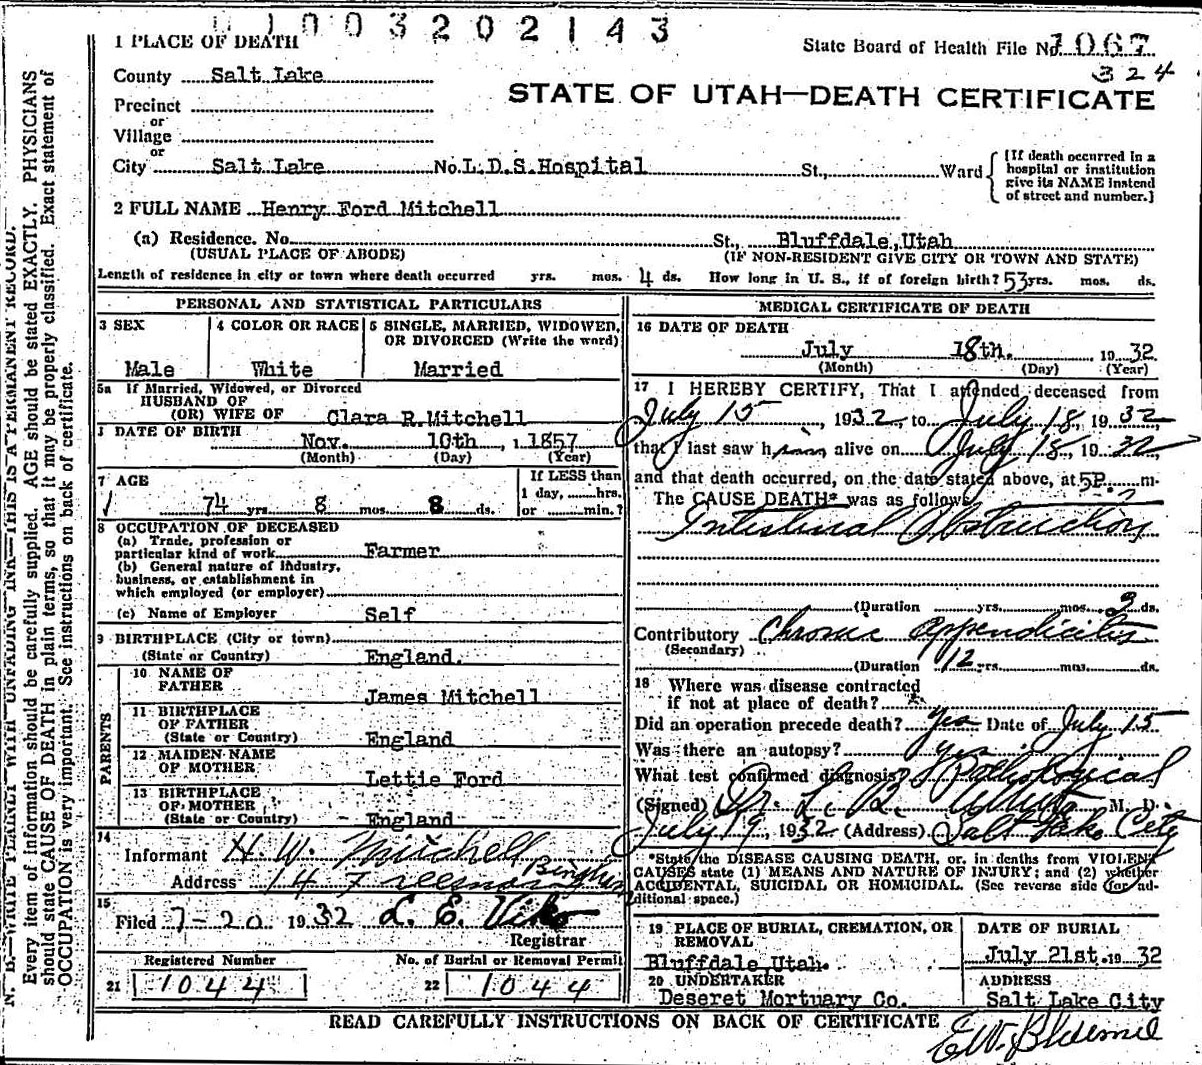 01003202143
1 PLACE OF DEATH
State Board of Health File No. 1067
324
County Salt Lake
STATE OF UTAH—DEATH CERTIFICATE
Precinct
or
Village
or
City Salt Lake No. L.D.S. Hospital St., Ward
[If death occurred in a hospital or institution give its NAME instead of street and number.]
2 FULL NAME Henry Ford Mitchell
(a) Residence. No. St., Bluffdale, Utah
(USUAL PLACE OF ABODE) (IF NON-RESIDENT GIVE CITY OR TOWN AND STATE)
Length of residence in city or town where death occurred yrs. mos. 4 ds. How long in U. S., if of foreign birth? 53 yrs. mos. ds.
PERSONAL AND STATISTICAL PARTICULARS
3 SEX
Male
4 COLOR OR RACE
White
5 SINGLE, MARRIED, WIDOWED, OR DIVORCED (Write the word)
Married
5a If Married, Widowed, or Divorced
HUSBAND OF
(OR) WIFE OF Clara R. Mitchell
DATE OF BIRTH
Nov. 10th, 1857
(Month) (Day) (Year)
7 AGE
74 yrs. 8 mos. 8 ds.
If LESS than
1 day, hrs.
or min.?
8 OCCUPATION OF DECEASED
(a) Trade, profession or
particular kind of work Farmer
(b) General nature of industry,
business, or establishment in
which employed (or employer)
(c) Name of Employer Self
9 BIRTHPLACE (City or town)
(State or Country) England.
PARENTS
10 NAME OF
FATHER James Mitchell
11 BIRTHPLACE
OF FATHER
(State or Country) England
12 MAIDEN NAME
OF MOTHER Lettie Ford
13 BIRTHPLACE
OF MOTHER
(State or Country) England
14
Informant H. W. Mitchell
Address 14
15
Filed 7-20 1932 L. E. Viko
Registrar
Registered Number No. of Burial or Removal Permit
21 1044 22 1044
MEDICAL CERTIFICATE OF DEATH
16 DATE OF DEATH
July 18th. 1932
(Month) (Day) (Year)
17 I HEREBY CERTIFY, That I attended deceased from
July 15, 1932, to July 18, 1932
that I last saw him alive on July 18, 1932
and that death occurred, on the date stated above, at 5P. m.
The CAUSE DEATH* was as follows
Intestinal Obstruction
(Duration yrs. mos. 3 ds.
Contributory Chronic appendicitis
(Secondary)
(Duration 12 yrs. mos. ds.
18 Where was disease contracted
if not at place of death?
Did an operation precede death? Yes Date of July 15
Was there an autopsy? yes
What test confirmed diagnosis? Pathological
(Signed) Dr. L. R. M. D.
July 19, 1932 (Address) Salt Lake City
*State the DISEASE CAUSING DEATH, or, in deaths from VIOLENT
CAUSES state (1) MEANS AND NATURE OF INJURY; and (2) whether
ACCIDENTAL, SUICIDAL OR HOMICIDAL. (See reverse side for ad-
ditional space.)
19 PLACE OF BURIAL, CREMATION, OR
REMOVAL
Bluffdale Utah.
DATE OF BURIAL
July 21st. 1932
20 UNDERTAKER
Deseret Mortuary Co.
ADDRESS
Salt Lake City
READ CAREFULLY INSTRUCTIONS ON BACK OF CERTIFICATE
N. B.—WRITE PLAINLY WITH UNFADING INK—THIS IS A PERMANENT RECORD.
Every item of information should be carefully supplied. AGE should be stated EXACTLY. PHYSICIANS
should state CAUSE OF DEATH in plain terms, so that it may be properly classified. Exact statement of
OCCUPATION is very important. See instructions on back of certificate.